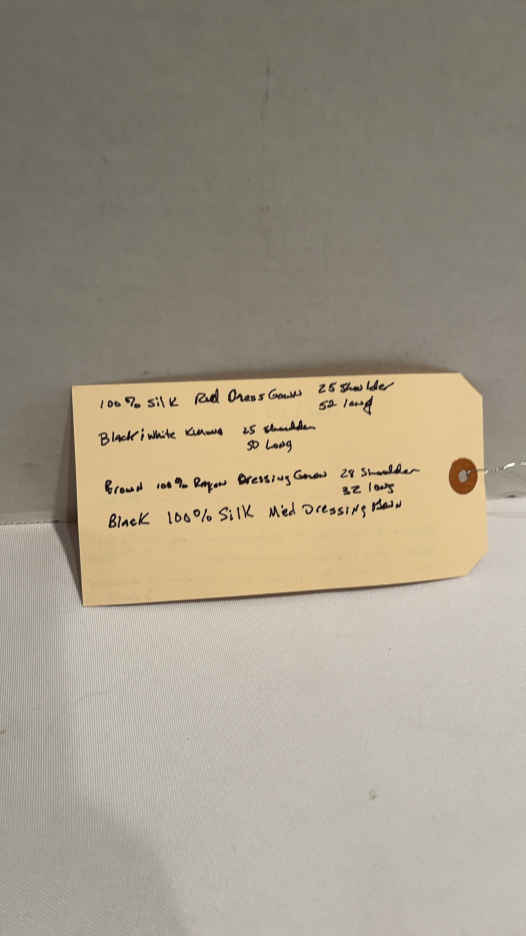 100% Silk Red Dress Gown 25 Shoulder
52 long
Black & White Kimono 25 shoulder
50 Long
Brown 100% Rayon Dressing Gown 28 Shoulder
32 long
Black 100% Silk Med Dressing Gown